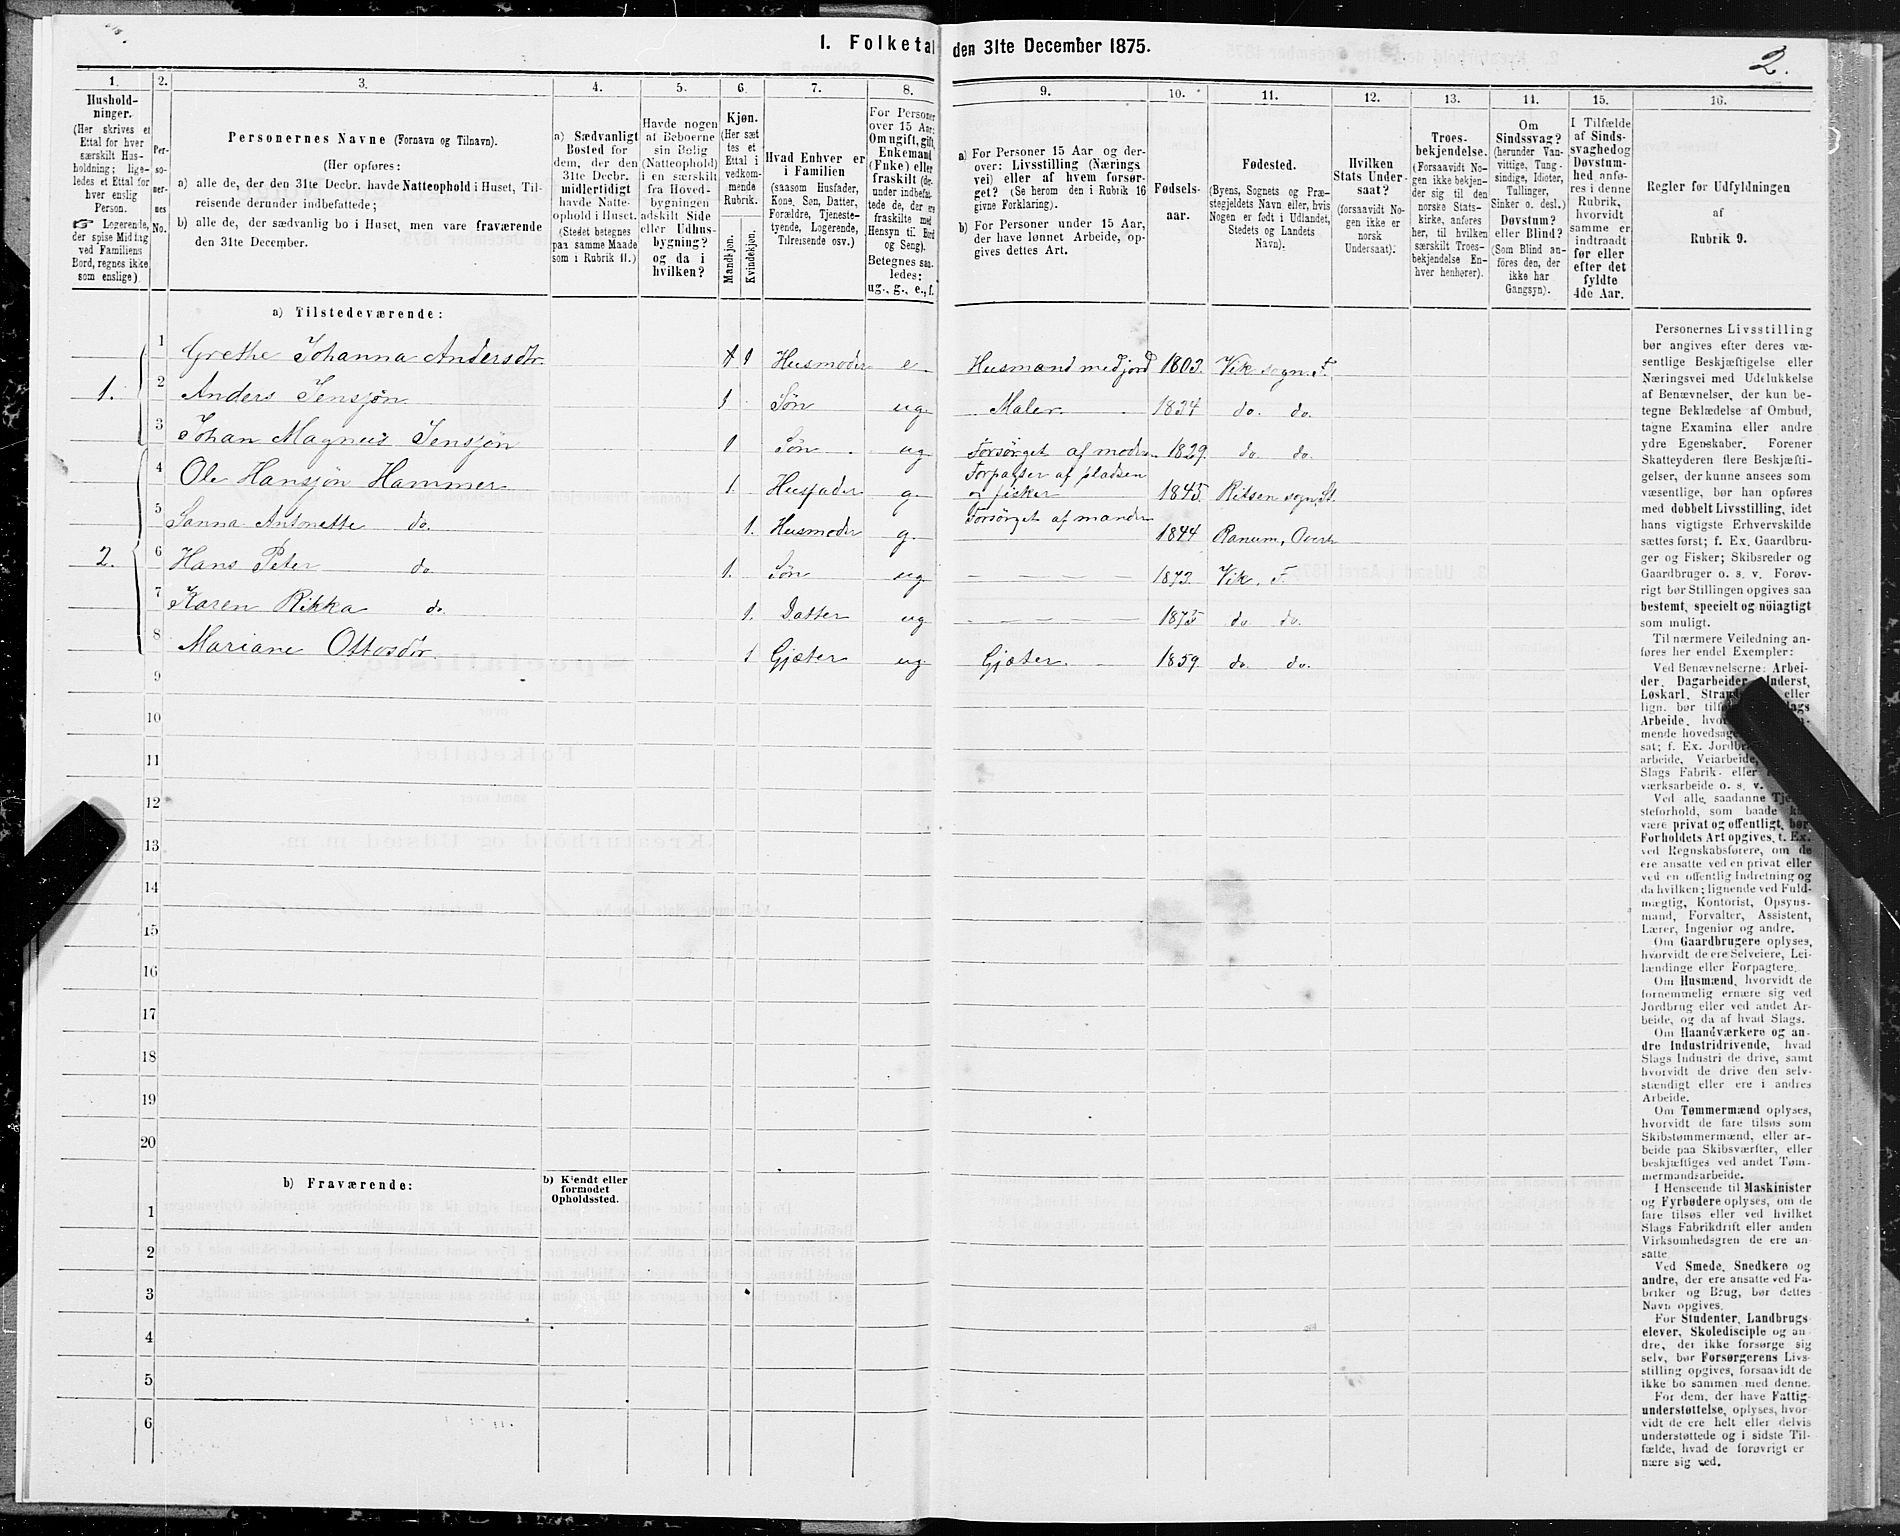 1. Folketal den 31te December 1875.
2.
1. 2. 3. 4. 5. 6. 7. 8. 9. 10. 11. 12. 13. 14. 15. 16.
Hushold-
ninger.
(Her skrives et
Ettal for hver
særskilt Hus-
holdning; lige-
ledes et Ettal for
hver enslig
Person.
☞ Logerende,
der spise Middag
ved Familiens
Bord, regnes ikke
som enslige)
Per-
so-
ner-
nes
No.
Personernes Navne (Fornavn og Tilnavn).
(Her opføres:
a) alle de, der den 31te Decbr. havde Natteophold i Huset, Til-
reisende derunder indbefattede;
b) alle de, der sædvanlig bo i Huset, men vare fraværende
den 31te December.
a) Sædvanligt
Bosted for
dem, der den
31te Decbr.
midlertidigt
havde Natte-
ophold i Huset.
(Stedet betegnes
paa samme Maade
som i Rubrik 11.)
Havde nogen
af Beboerne
sin Bolig
(Natteophold)
i en særskilt
fra Hoved-
bygningen
adskilt Side
eller Udhus-
bygning?
og da i
hvilken?
Kjøn.
(Her sæt-
tes et
Ettal i
vedkom-
mende
Rubrik.
Mandkjøn.
Kvindekjøn.
Hvad Enhver er
i Familien
(saasom Husfader,
Kone, Søn, Datter,
Forældre, Tjeneste-
tyende, Logerende,
Tilreisende osv.)
For Personer
over 15 Aar:
Om ugift, gift,
Enkemand
(Enke) eller
fraskilt (der-
under indbefat-
tede de, der ere
fraskilte med
Hensyn til Bord
og Seng).
Betegnes saa-
ledes:
ug., g., e., f.
a) For Personer 15 Aar og der-
over: Livsstilling (Nærings
vei) eller af hvem forsør-
get? (Se herom den i Rubrik 16
givne Forklaring).
b) For Personer under 15 Aar,
der have lønnet Arbeide, op-
gives dettes Art.
Fødsels-
aar.
Fødested.
(Byens, Sognets og Præ-
stegjeldets Navn, eller, hvis
Nogen er født i Udlandet,
Stedets og Landets
Navn).
Hvilken
Stats Under-
saat?
(forsaavidt No-
gen ikke er
norsk
Undersaat).
Troes-
bekjendelse.
(Forsaavidt No-
gen ikke bekjen-
der sig til den
norske Stats-
kirke, anføres
her, til hvilken
særskilt Troes-
bekjendelse En-
hver henhører).
Om
Sindssvag?
(herunder Van-
vittige, Tung-
sindige, Idioter,
Tullinger,
Sinker o. desl.)
Døvstum?
eller Blind?
(Som Blind an-
føres den, der
ikke har
Gangsyn).
I Tilfælde
af Sinds-
svaghed og
Døvstum-
hed anfø-
res i denne
Rubrik,
hvorvidt
samme er
indtraadt
før eller
efter det
fyldte
4de Aar.
Regler for Udfyldningen
af
Rubrik 9.
a) Tilstedeværende:
1 Grethe Johanna Andersdtr 1 Husmoder e Husmand med jord 1803. Vik sogn. F.
1.
2 Anders Jensjøn 1 Søn ug. Maler. 1834 do. do.
3 Johan Magnus Jensjøn 1 Søn. ug Forsørget af moder. 1829. do. do.
4 Ole Hansjøn Hammer 1 Husfader g. Forpagter af pladsen
og fisker 1845
5 Sanna Antonette do. 1. Husmoder g. Forsørget af manden 1844 Ranum, Overh
2.
6 Hans Peter do 1. Søn ug 1873 Vik. F.
7 Karen Rikka do. 1. Datter ug 1875 do do.
8 Mariane Ottosdtr 1 Gjæter ug. Gjæter. 1859. do. do.
9
10
11
12
13
14
15
16
17
18
19
20
b) Fraværende:
b) Kjendt eller
formodet
Opholdssted.
1
2
3
4
5
6
Personernes Livsstilling
bør angives efter deres væ-
sentlige Beskjæftigelse eller
Næringsvei med Udelukkelse
af Benævnelser, der kun be-
tegne Beklædelse af Ombud,
tagne Examina eller andre
ydre Egenskaber. Forener
Skatteyderen flere Beskjæfti-
gelser, der kunne ansees som
væsentlige, bør han opføres
med dobbelt Livsstilling, idet
hans vigtigste Erhvervskilde
sættes først; f. Ex. Gaardbru-
ger og Fisker; Skibsreder og
Gaardbruger o. s. v. Forøv-
rigt bør Stillingen opgives saa
bestemt, specielt og nöiagtigt
som muligt.
Til nærmere Veiledning an-
føres her endel Exempler:
Ved Benævnelserne: Arbei-
der, Dagarbeider, Inderst,
Løskarl, Strand eller
lign. bør tilfø
Arbeide, hvo
mende hovedsage
sat; f. Ex. Jordbr
arbeide, Veiarbeide,
Slags Fabrik- eller
værksarbeide o. s. v.
Ved alle, saadanne Tje
steforhold, som baade k
være privat og offentligt, bør
Forholdets Art opgives, t. Ex.
ved Regnskabsførere, om de
ere ansatte ved en privat eller
ved en offentlig Indretning og
da hvilken; lignende ved Fuld-
mægtig, Kontorist, Opsyns-
mand, Forvalter, Assistent,
Lærer, Ingeniør og andre.
Om Gaardbrugere oplyses,
hvorvidt de ere Selveiere, Lei-
lændinge eller Forpagtere.
Om Husmænd, hvorvidt de
fornemmelig ernære sig ved
Jordbrug eller ved andet Ar-
beide, og da af hvad Slags.
Om Haandværkere og an-
dre Industridrivende, hvad
Slags Industri de drive, samt
hvorvidt de drive den selv-
stændigt eller ere i andres
Arbeide.
Om Tømmermænd oplyses,
hvorvidt de fare tilsøs som
Skibstømmermænd, eller ar-
beide paa Skibsværfter, eller
beskjæftiges ved andet Tøm-
mermandsarbeide.
I Henseende til Maskinister
og Fyrbødere oplyses, om de
fare tilsøs eller ved hvilket
Slags Fabrikdrift eller anden
Virksomhedsgren de ere an-
satte
Ved Smede, Snedkere og
andre, der ere ansatte ved Fa-
briker og Brug, bør dettes
Navn opgives.
For Studenter, Landbrugs-
elever, Skoledisciple og an
dre, der ikke forsørge sig
selv, bør Forsørgerens Livs-
stilling opgives, forsaavidt de
ikke bo sammen med denne.
For dem, der have Fattig-
understøttelse, oplyses, hvor-
vidt de ere helt eller delvis
understøttede og i sidste Til-
fælde, hvad de forøvrigt er
nære sig ved.